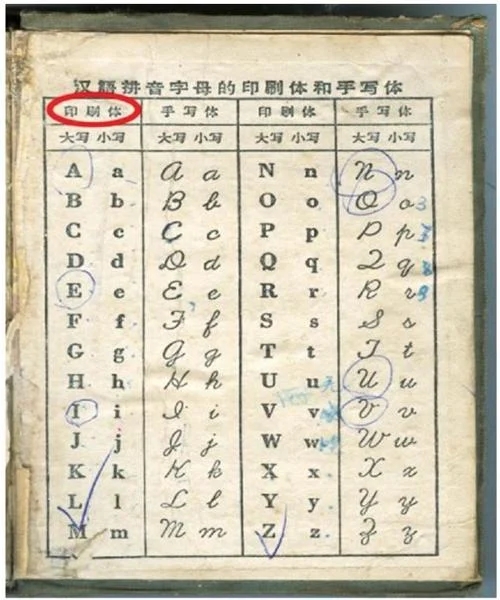 汉语拼音字母的印刷体和手写体
印刷体 手写体 印刷体 手写体
大写 小写 大写 小写 大写 小写 大写 小写
A a A a N n N n
B b B b O o O o 3
C c C c P p P p
D d D d Q q Q q
E e E e R r R r
F f F f S s S s
G g G g T t T t
H h H h U u U u
I i I i V v V v
J j J j W w W w
K k K k X x X x
L l L l Y y Y y
M m M m Z z Z z